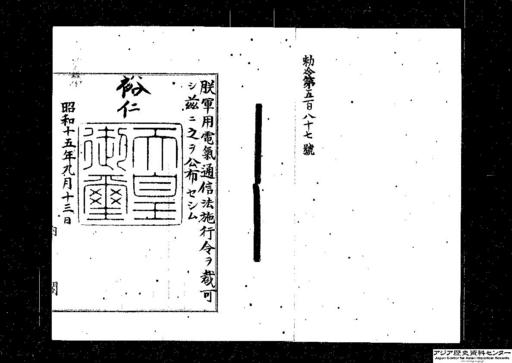 勅令第五百八十七號
朕軍用電氣通信法施行令ヲ裁可
シ茲ニ之ヲ公布セシム
裕仁
天皇
御璽
昭和十五年九月十三日
内閣
アジア歴史資料センター
Japan Center for Asian Historical Records